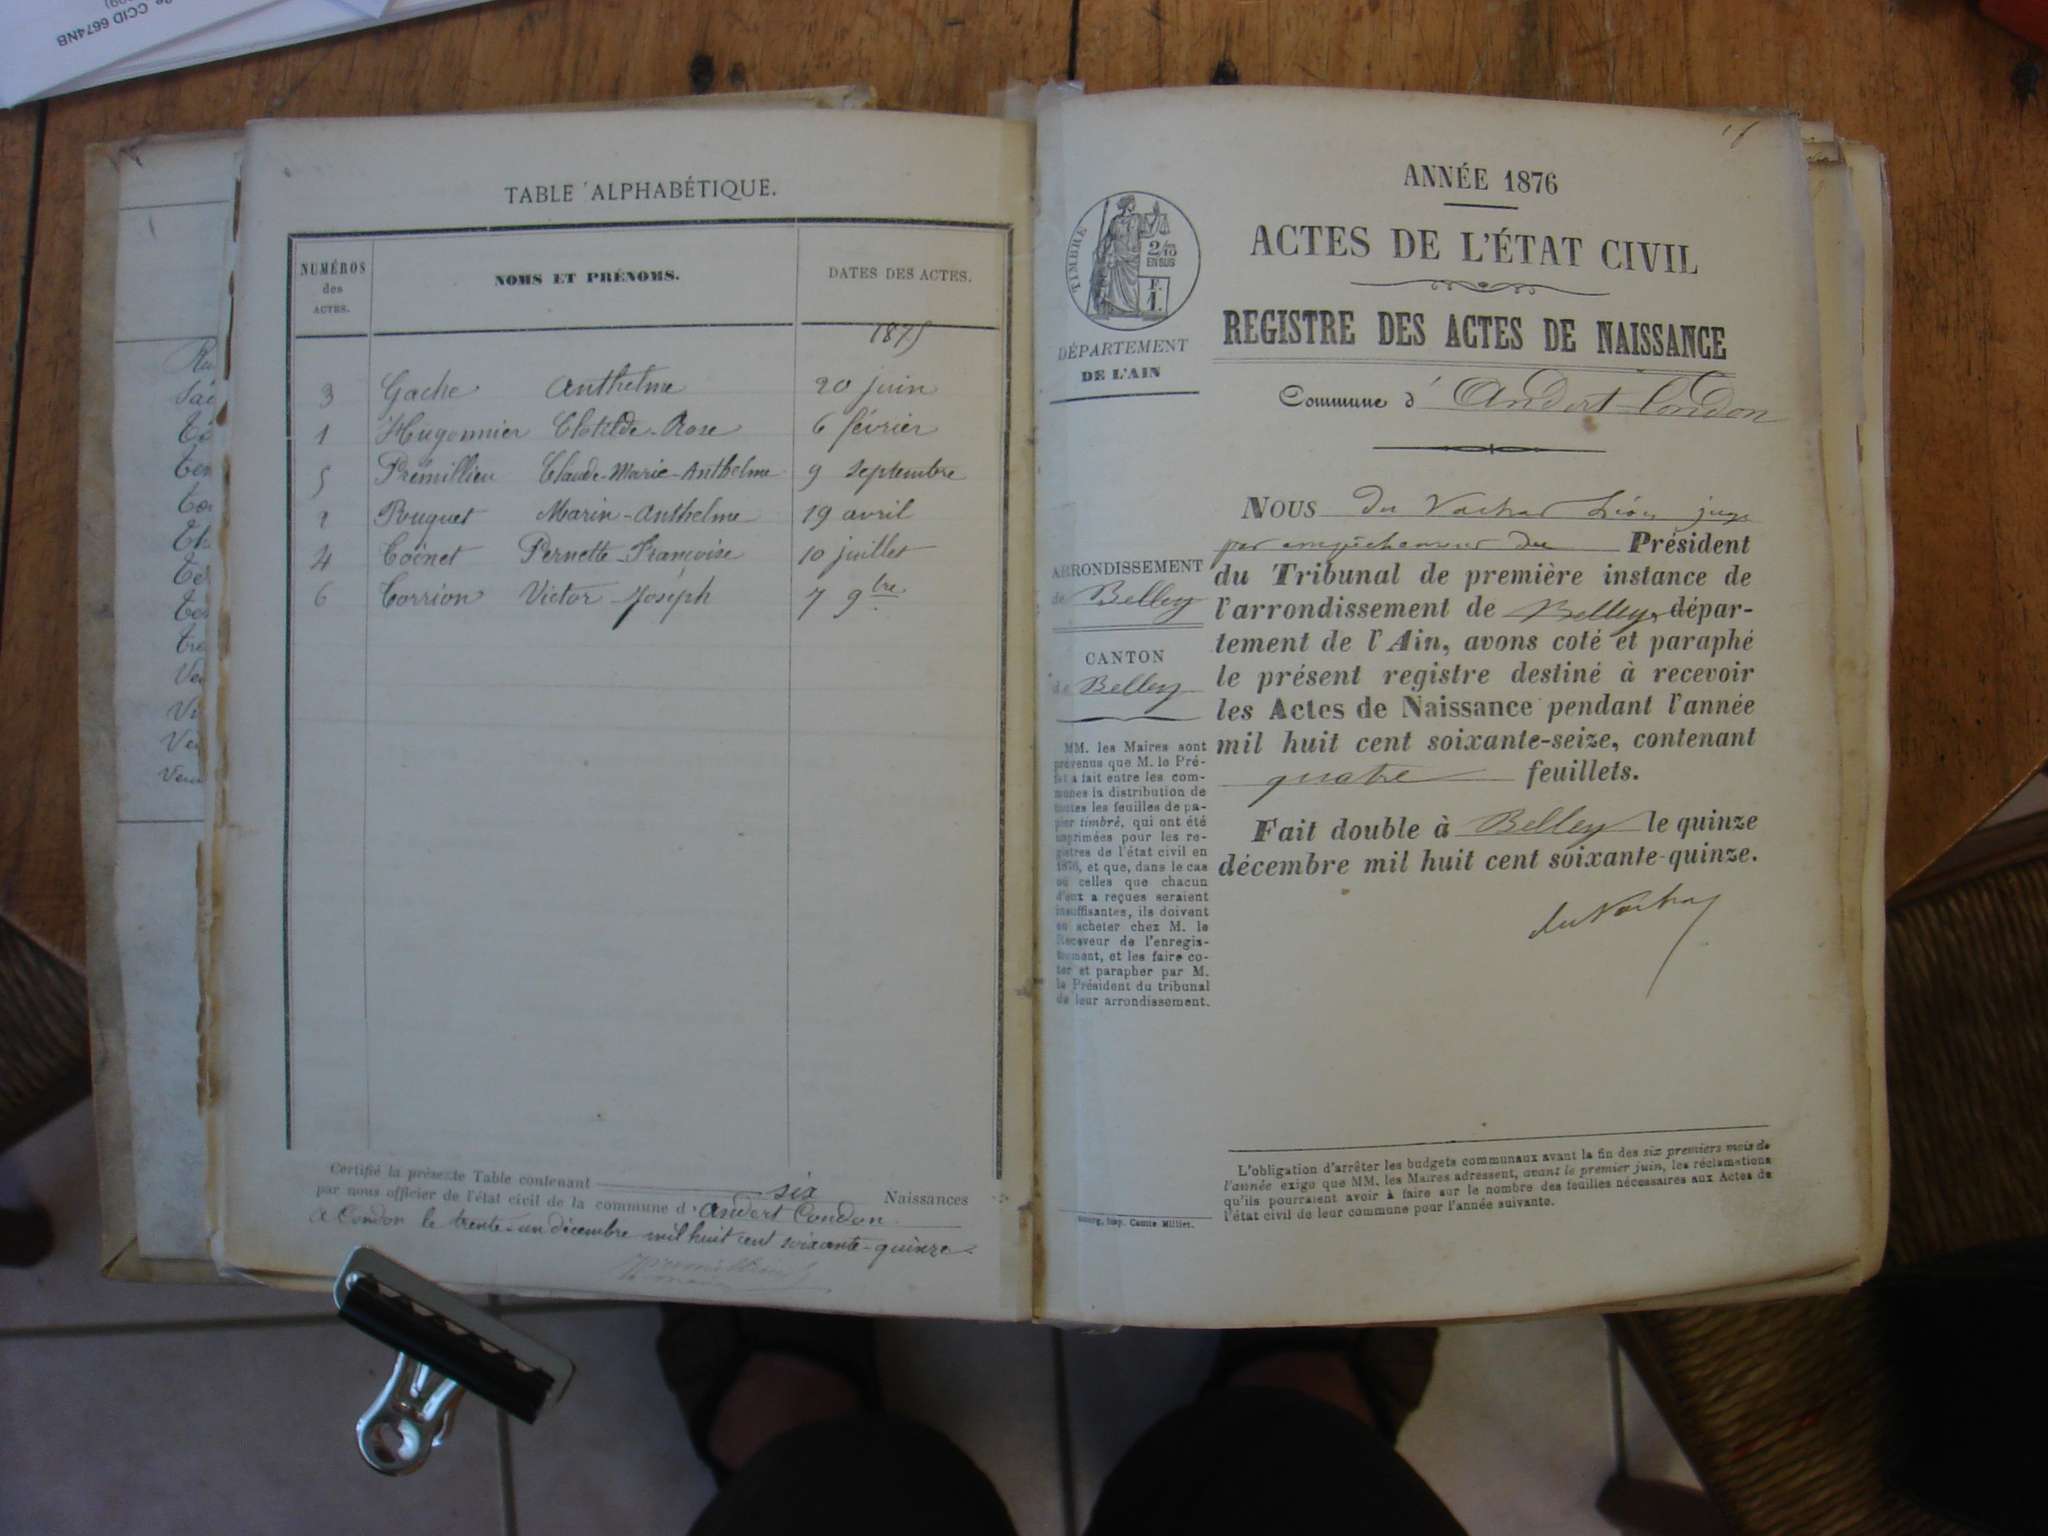 CCID 6674NB
TABLE ALPHABÉTIQUE.
NUMÉROS des ACTES.
NOMS ET PRÉNOMS.
DATES DES ACTES.
1875
3 Gache Anthelme 20 juin
1 Hugonnier Clotilde-Rose 6 février
5 Prémillieu Claude-Marie-Anthelme 9 septembre
2 Pouguet Marin-Anthelme 19 avril
4 Coënet Pernette-Françoise 10 juillet
6 Corrion Victor-Joseph 7 9bre
Certifié la présente Table contenant six Naissances
par nous officier de l'état civil de la commune d'Andert Condon
à Condon le trente-un décembre mil huit cent soixante-quinze.
ANNÉE 1876
ACTES DE L'ÉTAT CIVIL
REGISTRE DES ACTES DE NAISSANCE
Commune d'Andert Condon
TIMBRE
2/10
EN SUS
F.
1.
DÉPARTEMENT
DE L'AIN
ARRONDISSEMENT
de Belley
CANTON
de Belley
MM. les Maires sont
prévenus que M. le Pré-
fet a fait entre les com-
munes la distribution de
toutes les feuilles de pa-
pier timbré, qui ont été
imprimées pour les re-
gistres de l'état civil en
1876, et que, dans le cas
où celles que chacun
d'eux a reçues seraient
insuffisantes, ils doivent
en acheter chez M. le
Receveur de l'enregis-
trement, et les faire co-
ter et parapher par M.
le Président du tribunal
de leur arrondissement.
NOUS du Vachat Léon juge
par empêchement du Président
du Tribunal de première instance de
l'arrondissement de Belley, dépar-
tement de l'Ain, avons coté et paraphé
le présent registre destiné à recevoir
les Actes de Naissance pendant l'année
mil huit cent soixante-seize, contenant
quatre feuillets.
Fait double à Belley le quinze
décembre mil huit cent soixante-quinze.
du Vachat
L'obligation d'arrêter les budgets communaux avant la fin des six premiers mois de
l'année exige que MM. les Maires adressent, avant le premier juin, les réclamations
qu'ils pourraient avoir à faire sur le nombre des feuilles nécessaires aux Actes de
l'état civil de leur commune pour l'année suivante.
Bourg, Imp. Comte Milliet.